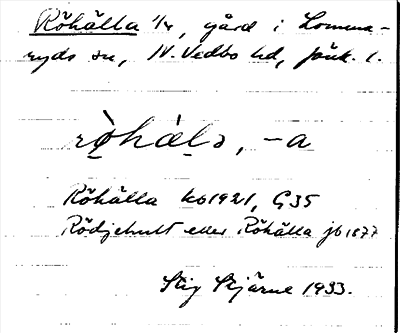 Röhälla 1/4, gård i Lomma-
ryds sn, N. Vedbo hd, Jönk. l.
rö̀hàlə, -a
Röhälla kb 1921, G 35
Rödjehult eller Röhälla jb 1877
Stig Stjärne 1933.